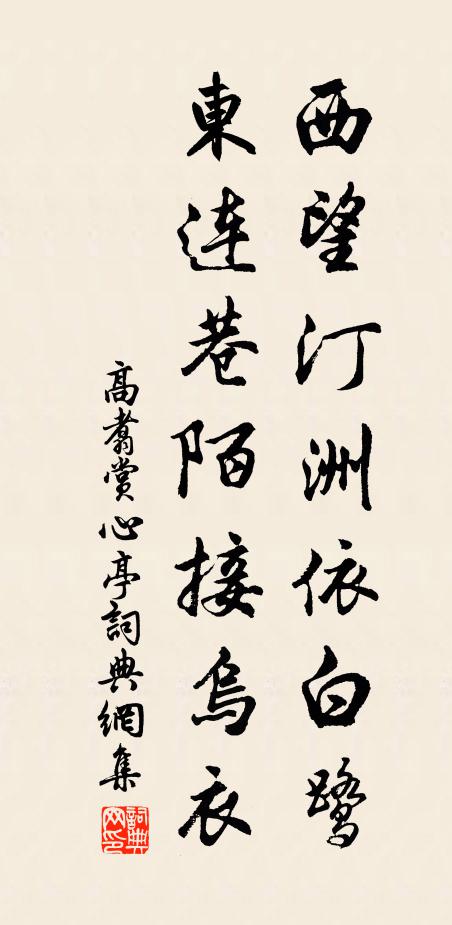 西望汀洲依白鹭
東连巷陌接烏衣
高翥賞心亭詞典網集
詞典网印